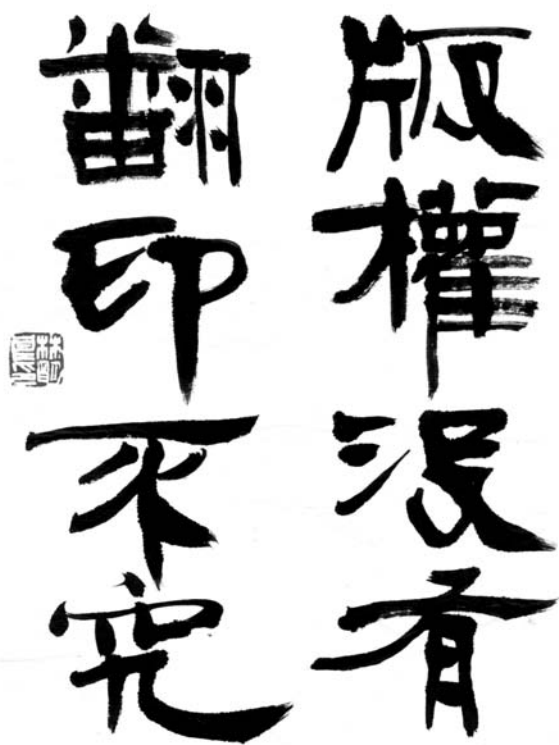 版權没有
翻印不究